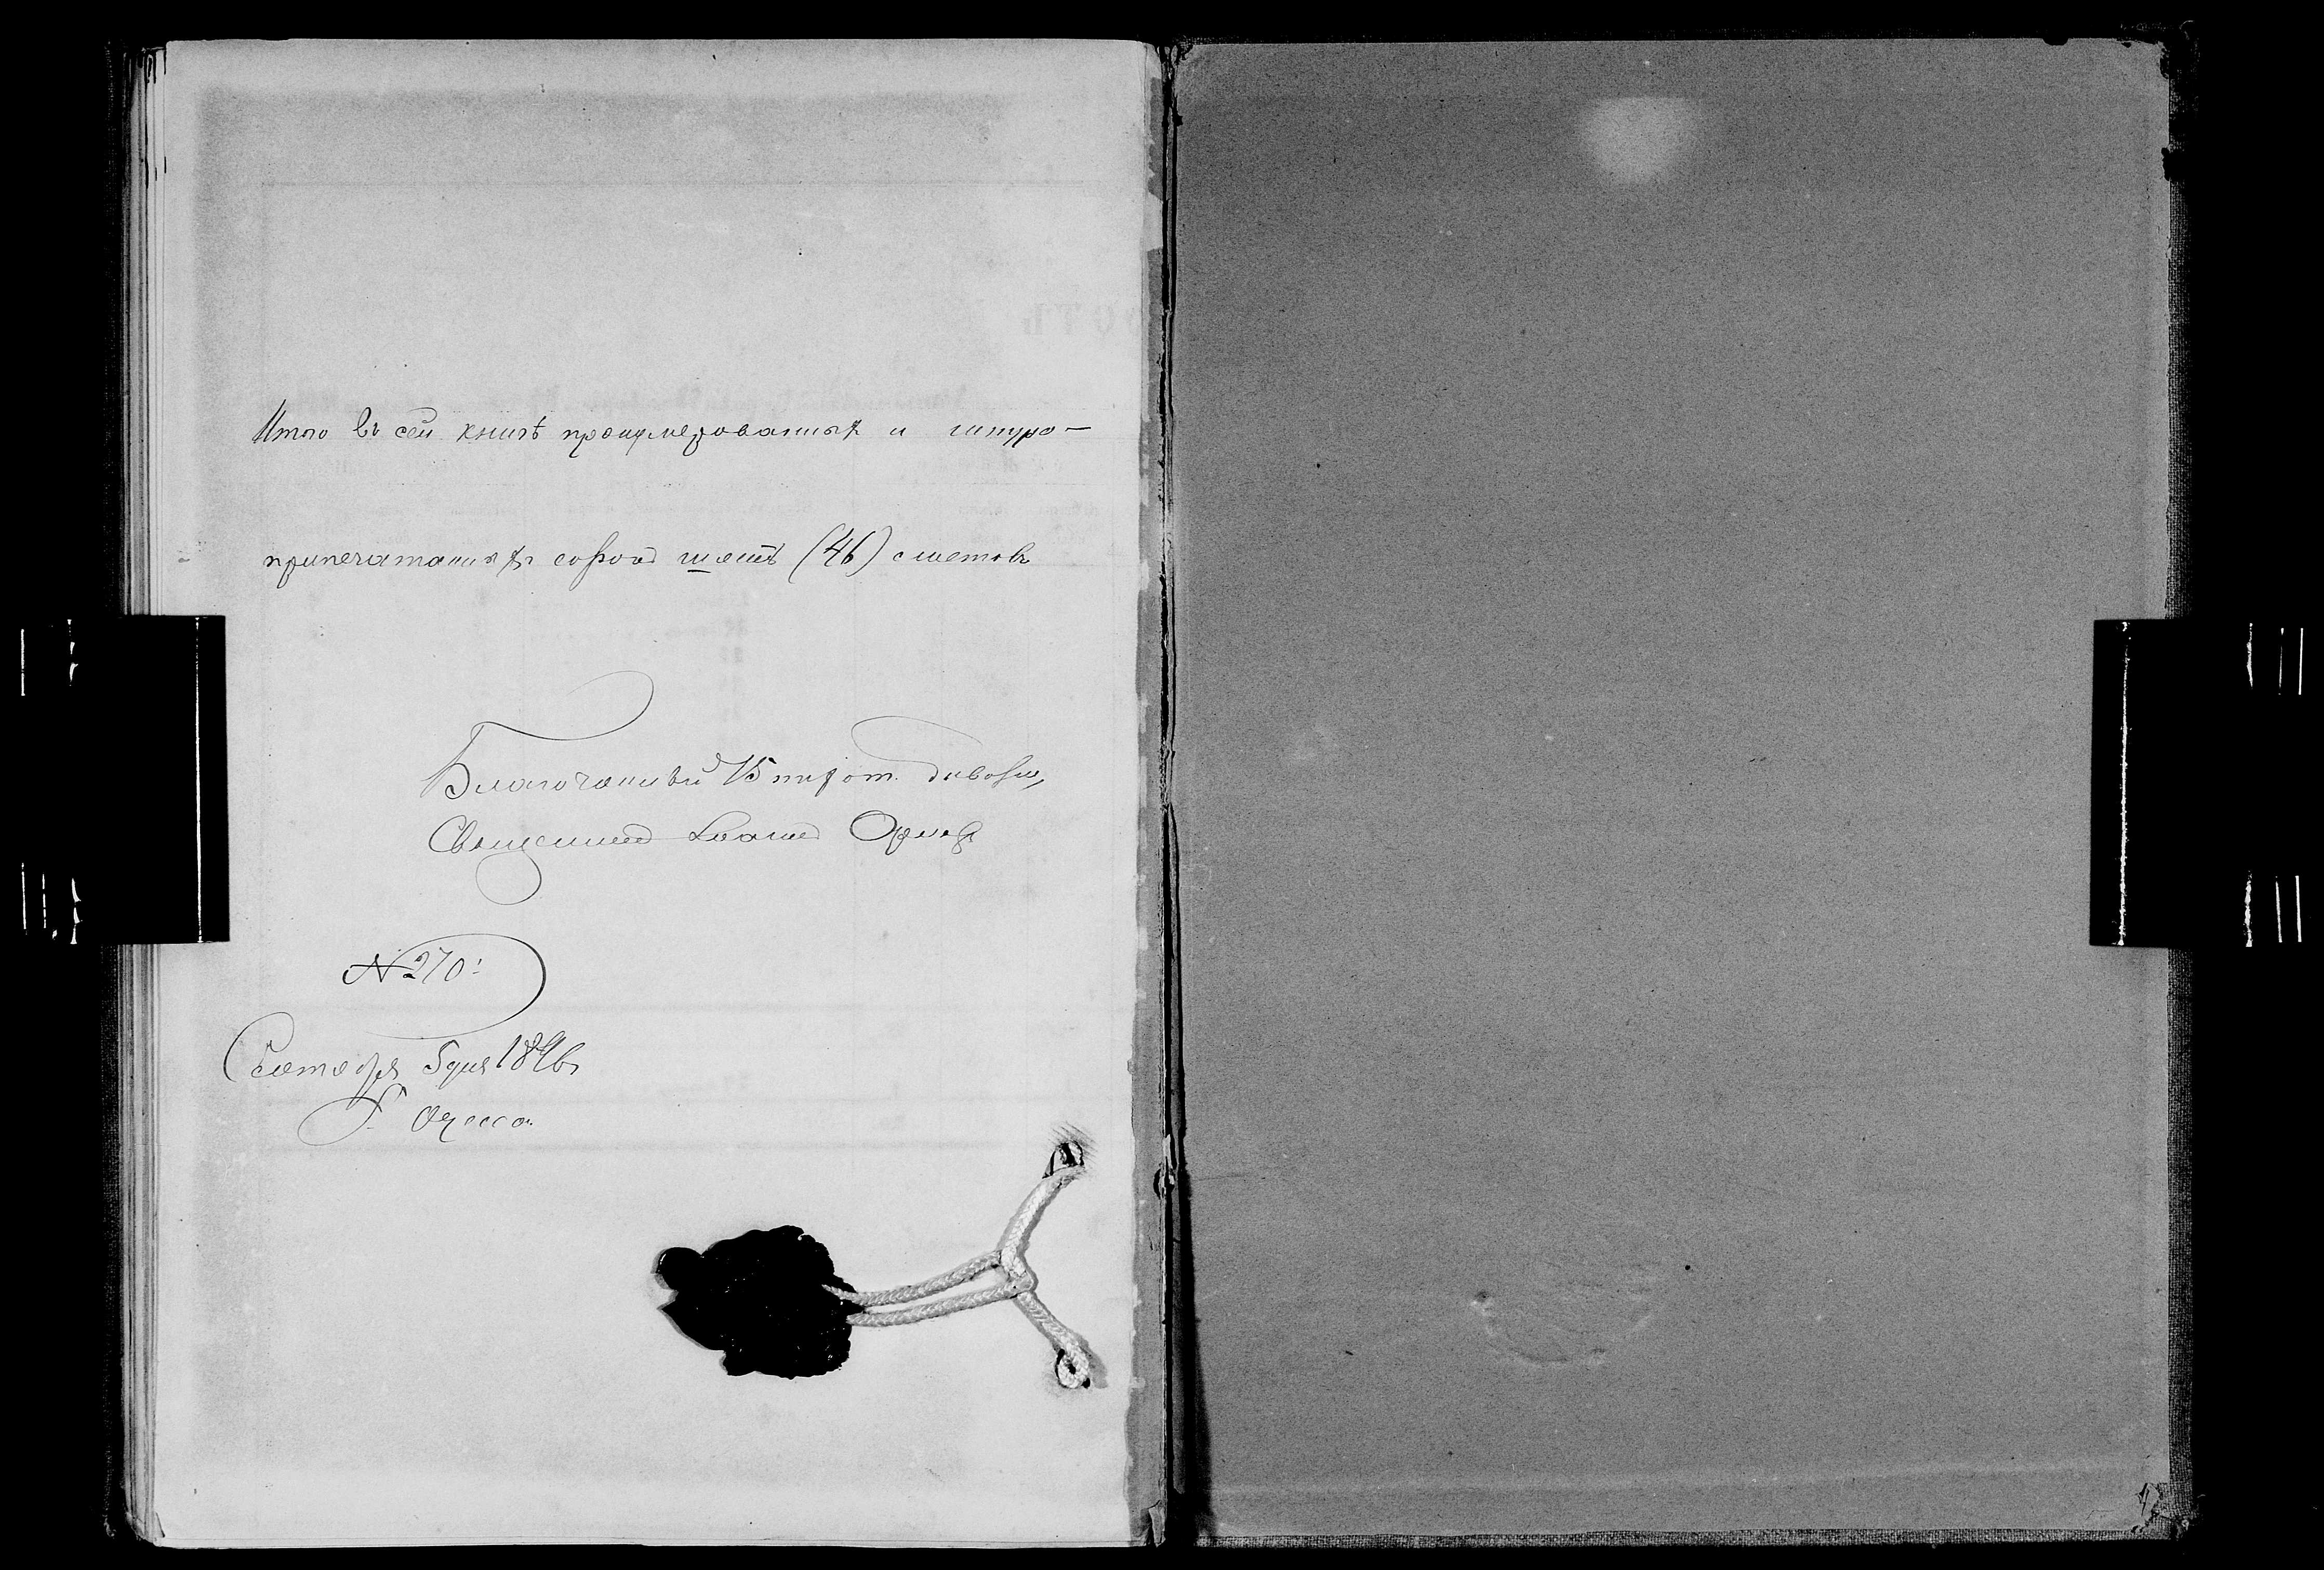 Итого въ сей книгѣ пронумерованныхъ и шнуро-
припечатанныхъ сорокъ шесть (46) листовъ
Благочинный 15 пѣхот. дивизіи,
Священникъ Іоаннъ Орловъ
№ 270.
Сентября 5 дня 1896 г.
Г. Одесса.